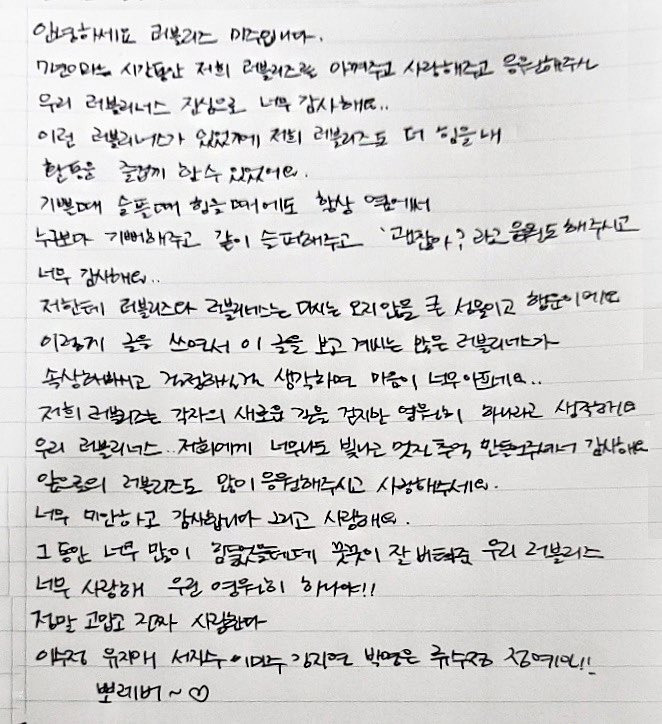 안녕하세요 러블리즈 미주입니다.
7년이라는 시간동안 저희 러블리즈를 아껴주고 사랑해주고 응원해주신
우리 러블리너스 진심으로 너무 감사해요..
이런 러블리너스가 있었기에 저희 러블리즈도 더 힘을 내
활동을 즐겁게 할 수 있었어요.
기쁠때 슬플때 힘들때에도 항상 옆에서
누구보다 기뻐해주고 같이 슬퍼해주고 '괜찮아? 라고 응원도 해주시고
너무 감사해요..
저한테 러블리즈와 러블리너스는 다시는 오지않을 큰 선물이고 행운이에요
이렇게 글을 쓰면서 이 글을 보고 계시는 많은 러블리너스가
속상해하시고 걱정하실걸 생각하면 마음이 너무아프네요..
저희 러블리즈는 각자의 새로운 길을 걷지만 영원히 하나라고 생각해요
우리 러블리너스.. 저희에게 너무나도 빛나고 멋진 추억 만들어주셔서 감사해요
앞으로의 러블리즈도 많이 응원해주시고 사랑해주세요.
너무 미안하고 감사합니다 그리고 사랑해요.
그동안 너무 많이 힘들었을텐데 꿋꿋이 잘 버텨준 우리 러블리즈
너무 사랑해 우린 영원히 하나야!!
정말 고맙고 진짜 사랑한다
이수정 유지애 서지수 이미주 김지연 박명은 류수정 정예인!!
뽀레버~♡